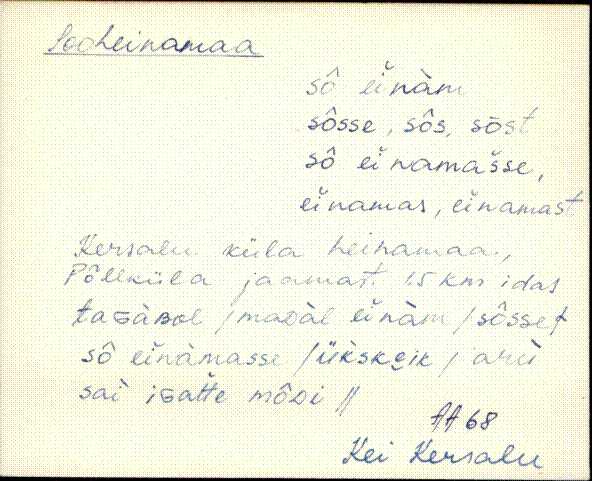 Sooheinamaa
sô ěinàm
sôsse, sôs, sōst
sô einamašse,
ěinamas, ěinamast
Kersalu küla heinamaa,
Põllküla jaamat. 1.5 km idas
taGàBol / maDàl ěinàm / sôsset
sô ěinàmasse / ükskeik / aru
sai iGatte môDi //
AA 68
Kei Kersalu